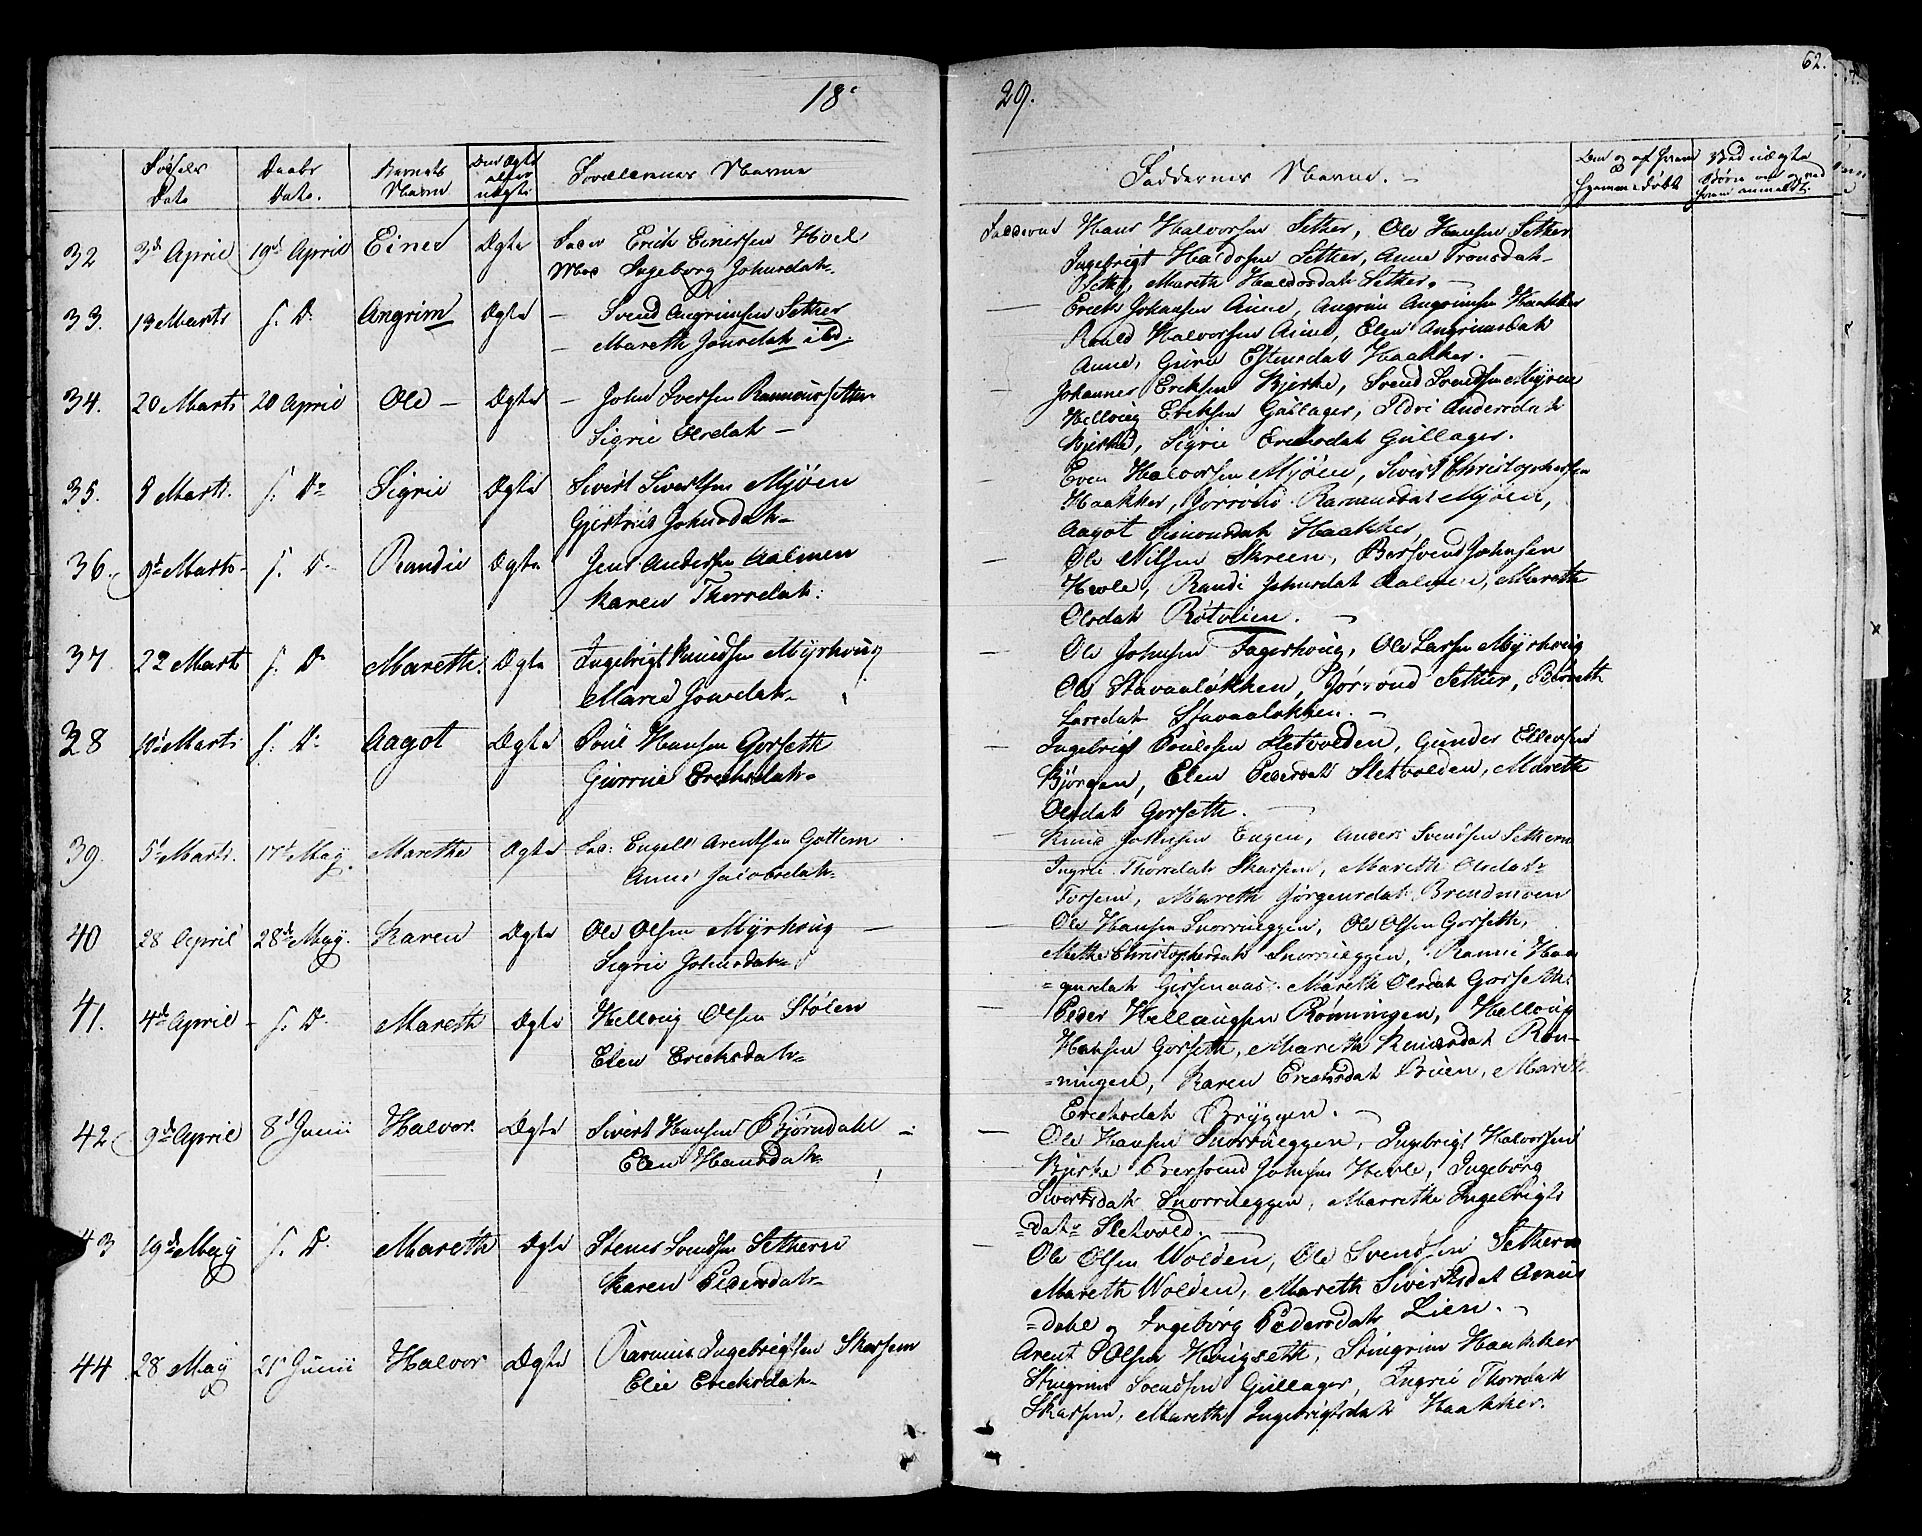 18
29.
62.
Fødsels Dato
Daabs Dato.
Barnets Navn
Om Ægte eller uægte
Forældrenes Navne
Faddernes Navne.
32 3de April 19de April Einer Ægte Fader Erich Einersen Hoel
Moe Ingeborg Johnsdatr
Fadderne Hans Halvorsen Sether, Ole Hansen Sether
Ingebrigt Haldosen Sether, Anne Tronsdatr
Sether, Mareth Haldorsdatr Sether.
33. 19 Marts s. D. Angrim Ægte Svend Angrimsen Sether
Mareth Jonsdatr ibd.
Erich Johansen Aune, Angrim Angrimsen Haakker
Roald Halvorsen Aune, Elen Angrimsdatr
Aune, Guru Estensdatr Haakker.
34. 20 Marts 20 April Ole Ægte John Iversen
Sigrie Olsdatr
Johannes Eriksen Bjerke, Svend Svendsen Myren
Hellvug Eriksen Gullager, Ildri Andersdatr
Bjerke, Sigrie Erichsdatr Gullager.
35. 8 Marts. s. D. Sigrie Ægte Sivert Sivertsen Mjöen
Gjertrud Johnsdatr
Even Halvorsen Mjöen, Sivert Christophersen
Haakker, Jorrond Rasmusdatr Mjöen,
Aagot Simonsdatr Haakker.
36. 9de Marts s. D. Randie Ægte Jens Andersen Aalmen
Karen Thoresdatr
Ole Nilsen Skreen, Bersvend Johnsen
Hevle, Randi Johnsdatr Aalmen, Mareth
Olsdatr Rötveien.
37. 22 Marts s. D. Mareth. Ægte Ingebrigt Knudsen Myrhoug
Marie Jonsdatr
Ole Johnsen Fagerhoug, Ole Larsen Myrhoug
Ole Stavaaløkken, Jorrond Sether, Mareth
Larsdatr Stavaaløkken.
38 10de Marts s. D. Aagot Ægte Poul Hansen Gorseth
Gurrue Erichsdatr
Ingebrigt Poulsen Sletvolden, Gunder Ellevsen
Björgen, Elen Pedersdatr Sletvolden, Mareth
Olsdatr Gorseth.
39. 5te Marts. 17de May Marethe Ægte Fad: Engelb Arentsen Gottem
Anne Jacobsdatr
Knud Johnsen Engen, Anders Svendsen Setherne
Ingrie Thoresdatr Skarsem, Mareth Olsdatr
Forsem, Mareth Jørgensdatr Brendmoen
40 28 April 28de May. Karen Ægte Ole Olsen Myrhoug
Sigrie Johnsdatr
Ole Hansen Snorrueggen, Ole Olsen Gorseth,
Mette Christophersdatr Snorrueggen, Rannei Haa
gensdatr Gissenaas. Mareth Olsdatr Gorseth
41. 4de April s. D. Mareth Ægte Hellvug Olsen Stölen
Elen Erichsdatr
Peder Hellaugsen Rønningen, Hellvug
Hansen Gorseth, Mareth Knudsdatr Røn-
ningen, Karen Erichsdatr Buen, Mareth
Erichsdatr Bryggen.
42 9de April 8de Junii Halvor. Ægte Sivert Hansen Bjørndahl
Elen Hansdatr
Ole Hansen Snorrueggen, Ingebrigt Halvorsen
Bjerke Bersvend Johnsen Hevle, Ingeborg
Sivertsdatr Snorrueggen, Marrethe Ingebrigts
datr Sletvold.
43 19de May s. D. Mareth Ægte Stener Svendsen Setherne
Karen Pedersdatr
Ole Olsen Wolden, Ole Svendsen Setherne
Mareth Wolden, Mareth Sivertsdatr
dahl og Ingeborg Pedersdatr Lien.
44 28 May 21 Junii Halvor Ægte Rasmus Ingebrigtsen Skarsem
Elie Erichsdatr
Arent Olsen Hougseth, Stingrim Haakker
Stingrim Svendsen Gullager, Ingrie Thoresdatr
Skarsem, Mareth Ingebrigtsdatr Haakker.